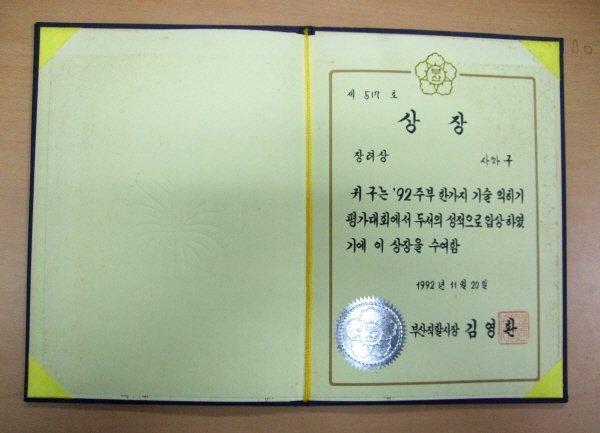 부산
제 517 호
상 장
장려상 사하구
귀 구는 '92 주부 한가지 기술 익히기
평가대회에서 두서의 성적으로 입상하였
기에 이 상장을 수여함
1992 년 11 월 20 일
부산직할시장 김영환